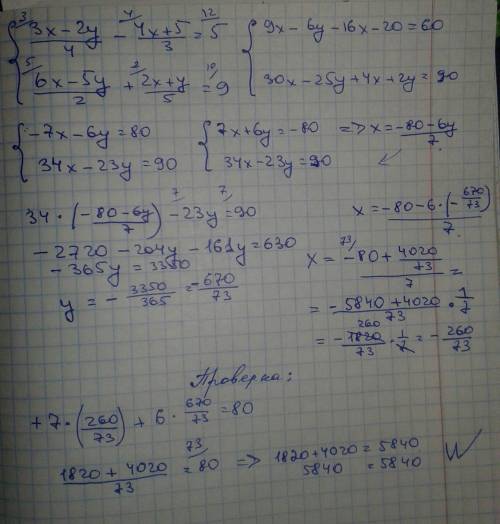 { 3/ (3x-2y)/4 - 4/ (4x+5)/3 = 12/ 5
{ 5/ (6x-5y)/2 + 2/ (2x+y)/5 = 10/ 9
{ 9x-6y-16x-20=60
{ 30x-25y+4x+2y=90
{ -7x-6y=80
{ 34x-23y=90
{ 7x+6y=-80 => x=(-80-6y)/7
{ 34x-23y=90
34·((-80-6y)/7) - 7/ 23y = 7/ 90
-2720-204y-161y=630
-365y=3350
y=-3350/365=-670/73
x=(-80-6·(-670/73))/7
x=(73/ -80+4020/73)/7=
=(-5840+4020)/73·1/7
=-1820/73·1/7=-260/73
260
Проверка:
+7·(260/73)+6·670/73=80
(1820+4020)/73 = 73/ 80 => 1820+4020=5840
5840=5840